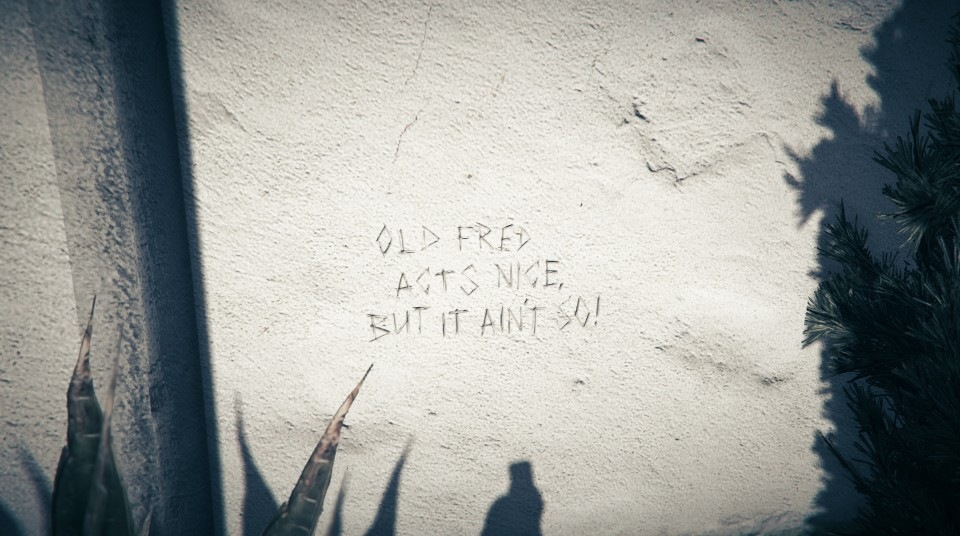 OLD FRED
ACTS NICE,
BUT IT AIN'T SO!